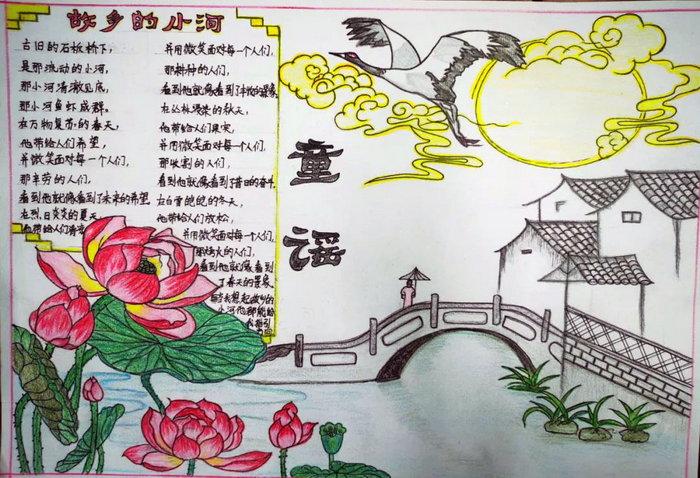 故乡的小河
古旧的石板桥下，
是那流动的小河，
那小河清澈见底，
那小河鱼虾成群。
在万物复苏的春天，
他带给人们希望，
并微笑面对每一个人们，
那辛劳的人们，
看到他就像看到了未来的希望
在烈日炎炎的夏天
他带给人们清凉
并用微笑面对每一个人们，
那耕种的人们，
看到他就像看到了丰收的景象
在丛林浸染的秋天，
他带给人们果实，
并用微笑面对每一个人们，
那收割的人们，
看到他就像看到了昔日的奋斗
在白雪皑皑的冬天，
他带给人们放松，
并用微笑面对每一个人们，
那烤火的人们，
看到他就像看到
了春天的景象，
想起故乡的
小河他都能给
童谣